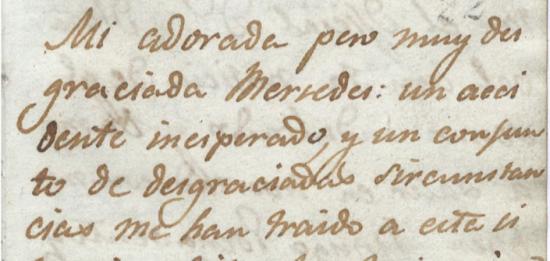 Mi adorada pero muy des
graciada Mersedes: un acci
dente inesperado, y un conjun
to de desgraciadas sircunstan
cias me han traido a esta si